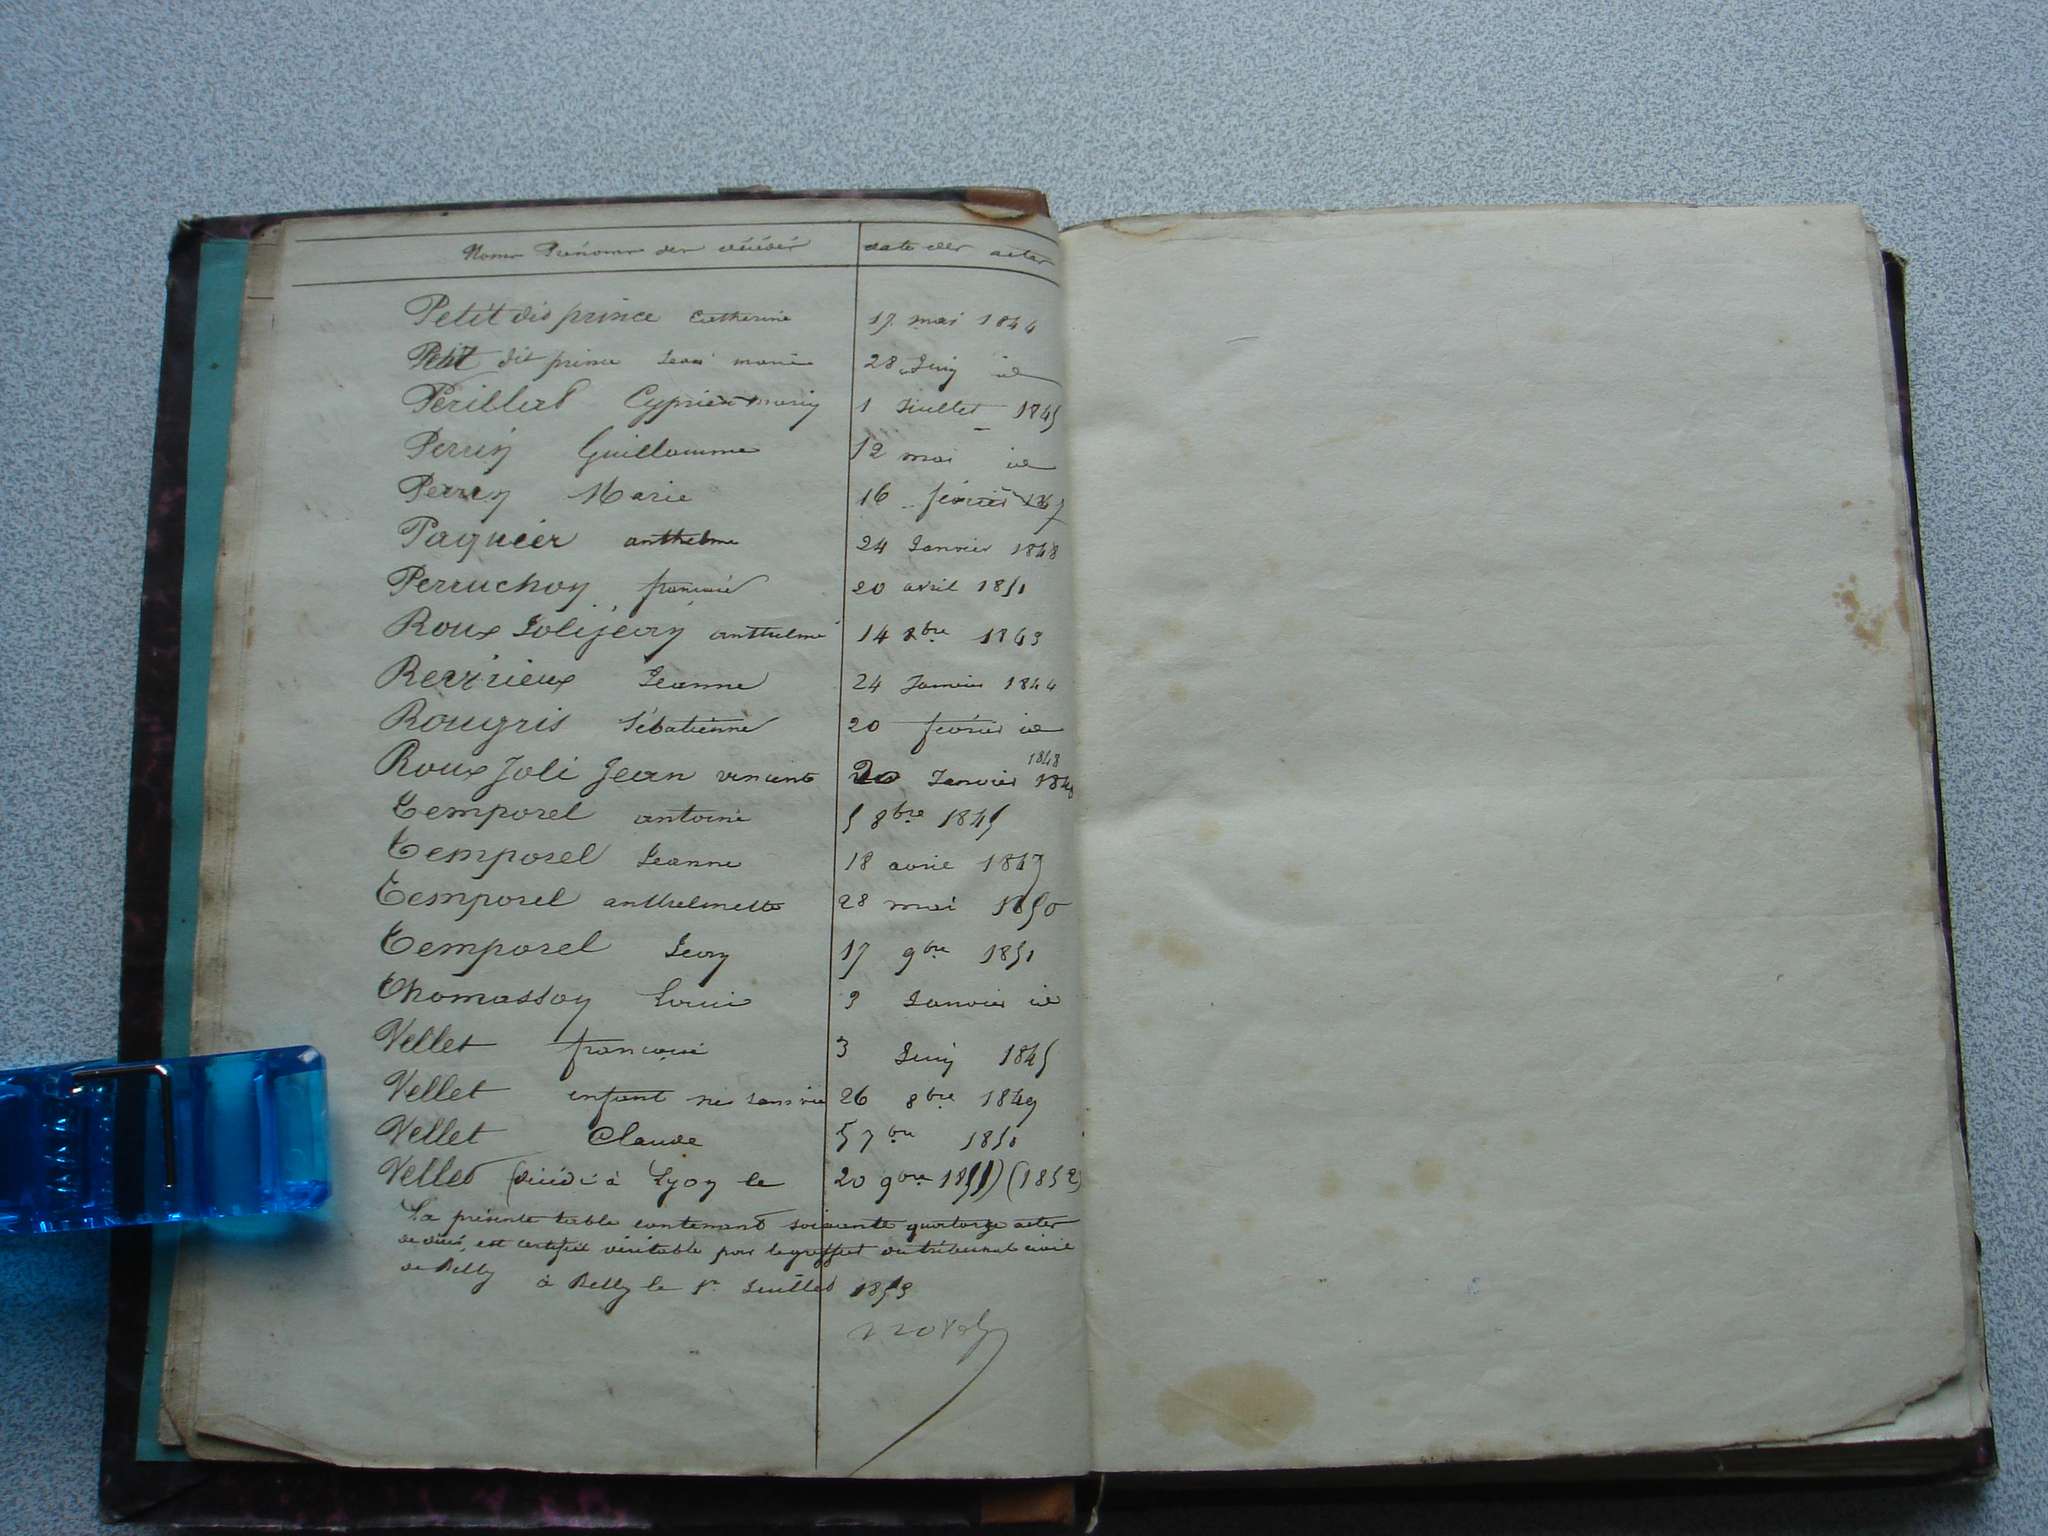 Noms Prénoms des décédés date des actes
Petit dit prince Catherine 17 mai 1844
Petit dit prince Jean marie 28 Juin id
Perillat Cyprien marie 1 Juillet 1845
Perrin Guillaume 12 mai id
Perrin Marie 16 février 1847
Paquier anthelme 24 Janvier 1848
Perruchon françois 20 avril 1851
Roux Jolijean anthelme 14 8bre 1843
Jeanne 24 Janvier 1844
Rougris Sébatienne 20 février id
Roux Joli Jean vincent 20 Janvier 1848 1848
Temporel antoine 5 8bre 1845
Temporel Jeanne 18 avril 1847
Temporel anthelmette 28 mai 1850
Temporel Jean 17 9bre 1851
Thomasson Louis 9 Janvier id
Vellet 3 Juin 1845
Vellet enfant né sans vie 26 8bre 1849
Vellet Claude 5 7bre 1850
Vellet (décédé à Lyon le 20 9bre 1851) (1852)
La présente table contenant soixante quatorze actes
de décès, est certifiée véritable par le greffier du tribunal civil
de Belley à Belley le 1er Juillet 1853